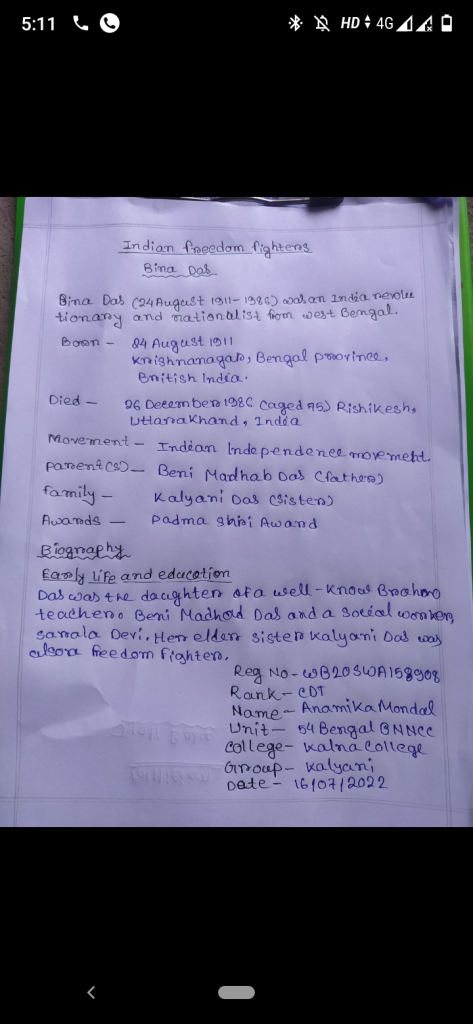 5:11 HD 4G
Indian freedom fighters
Bina Das
Bina Das (24 August 1911-1986) was an India revolu
tionary and nationalist from west Bengal.
Born - 24 August 1911
Krishnanagar, Bengal province,
British India.
Died - 26 December 1986 (aged 75) Rishikesh,
Uttarakhand, India
Movement - Indian Independence movement.
parent(s) - Beni Madhab Das (father)
family - Kalyani Das (sister)
Awards - Padma Shri Award
Biography
Early life and education
Das was the daughter of a well-know Brahmo
teacher, Beni Madhab Das and a social worker,
sarala Devi. Her elder sister Kalyani Das was
also a freedom fighter.
Reg No - WB20SWA158908
Rank - CDT
Name - Anamika Mondal
Unit - 54 Bengal BN NCC
College - Kalna College
Group - Kalyani
Date - 16/07/2022